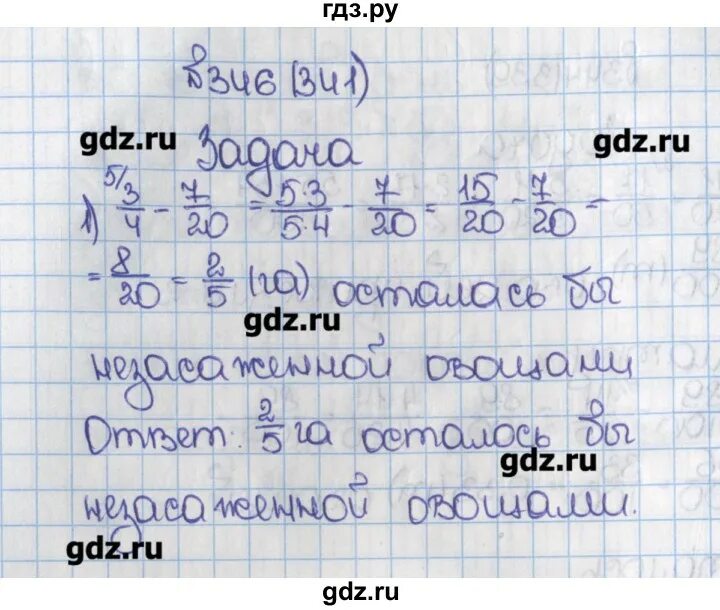 гдз.ру
В 346 (341)
gdz.ru
gdz.ru
Задача
1) 5/ 3/4 - 7/20 = 5·3/5·4 - 7/20 = 15/20 - 7/20 =
= 8/20 = 2/5 (га) осталась бы
gdz.ru
незасаженной овощами
Ответ: 2/5 га осталось бы
gdz.ru
незасаженной овощами.
gdz.ru
gdz.ru